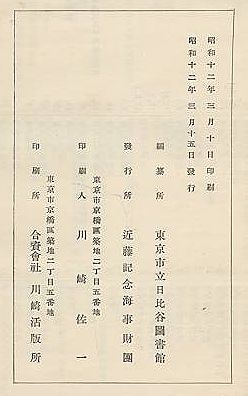 昭和十二年三月十日印刷
昭和十二年三月十五日發行
編纂所 東京市立日比谷圖書館
發行所 近藤記念海事財團
東京市京橋區築地二丁目五番地
印刷人 川崎佐一
東京市京橋區築地二丁目五番地
印刷所 合資會社 川崎活版所